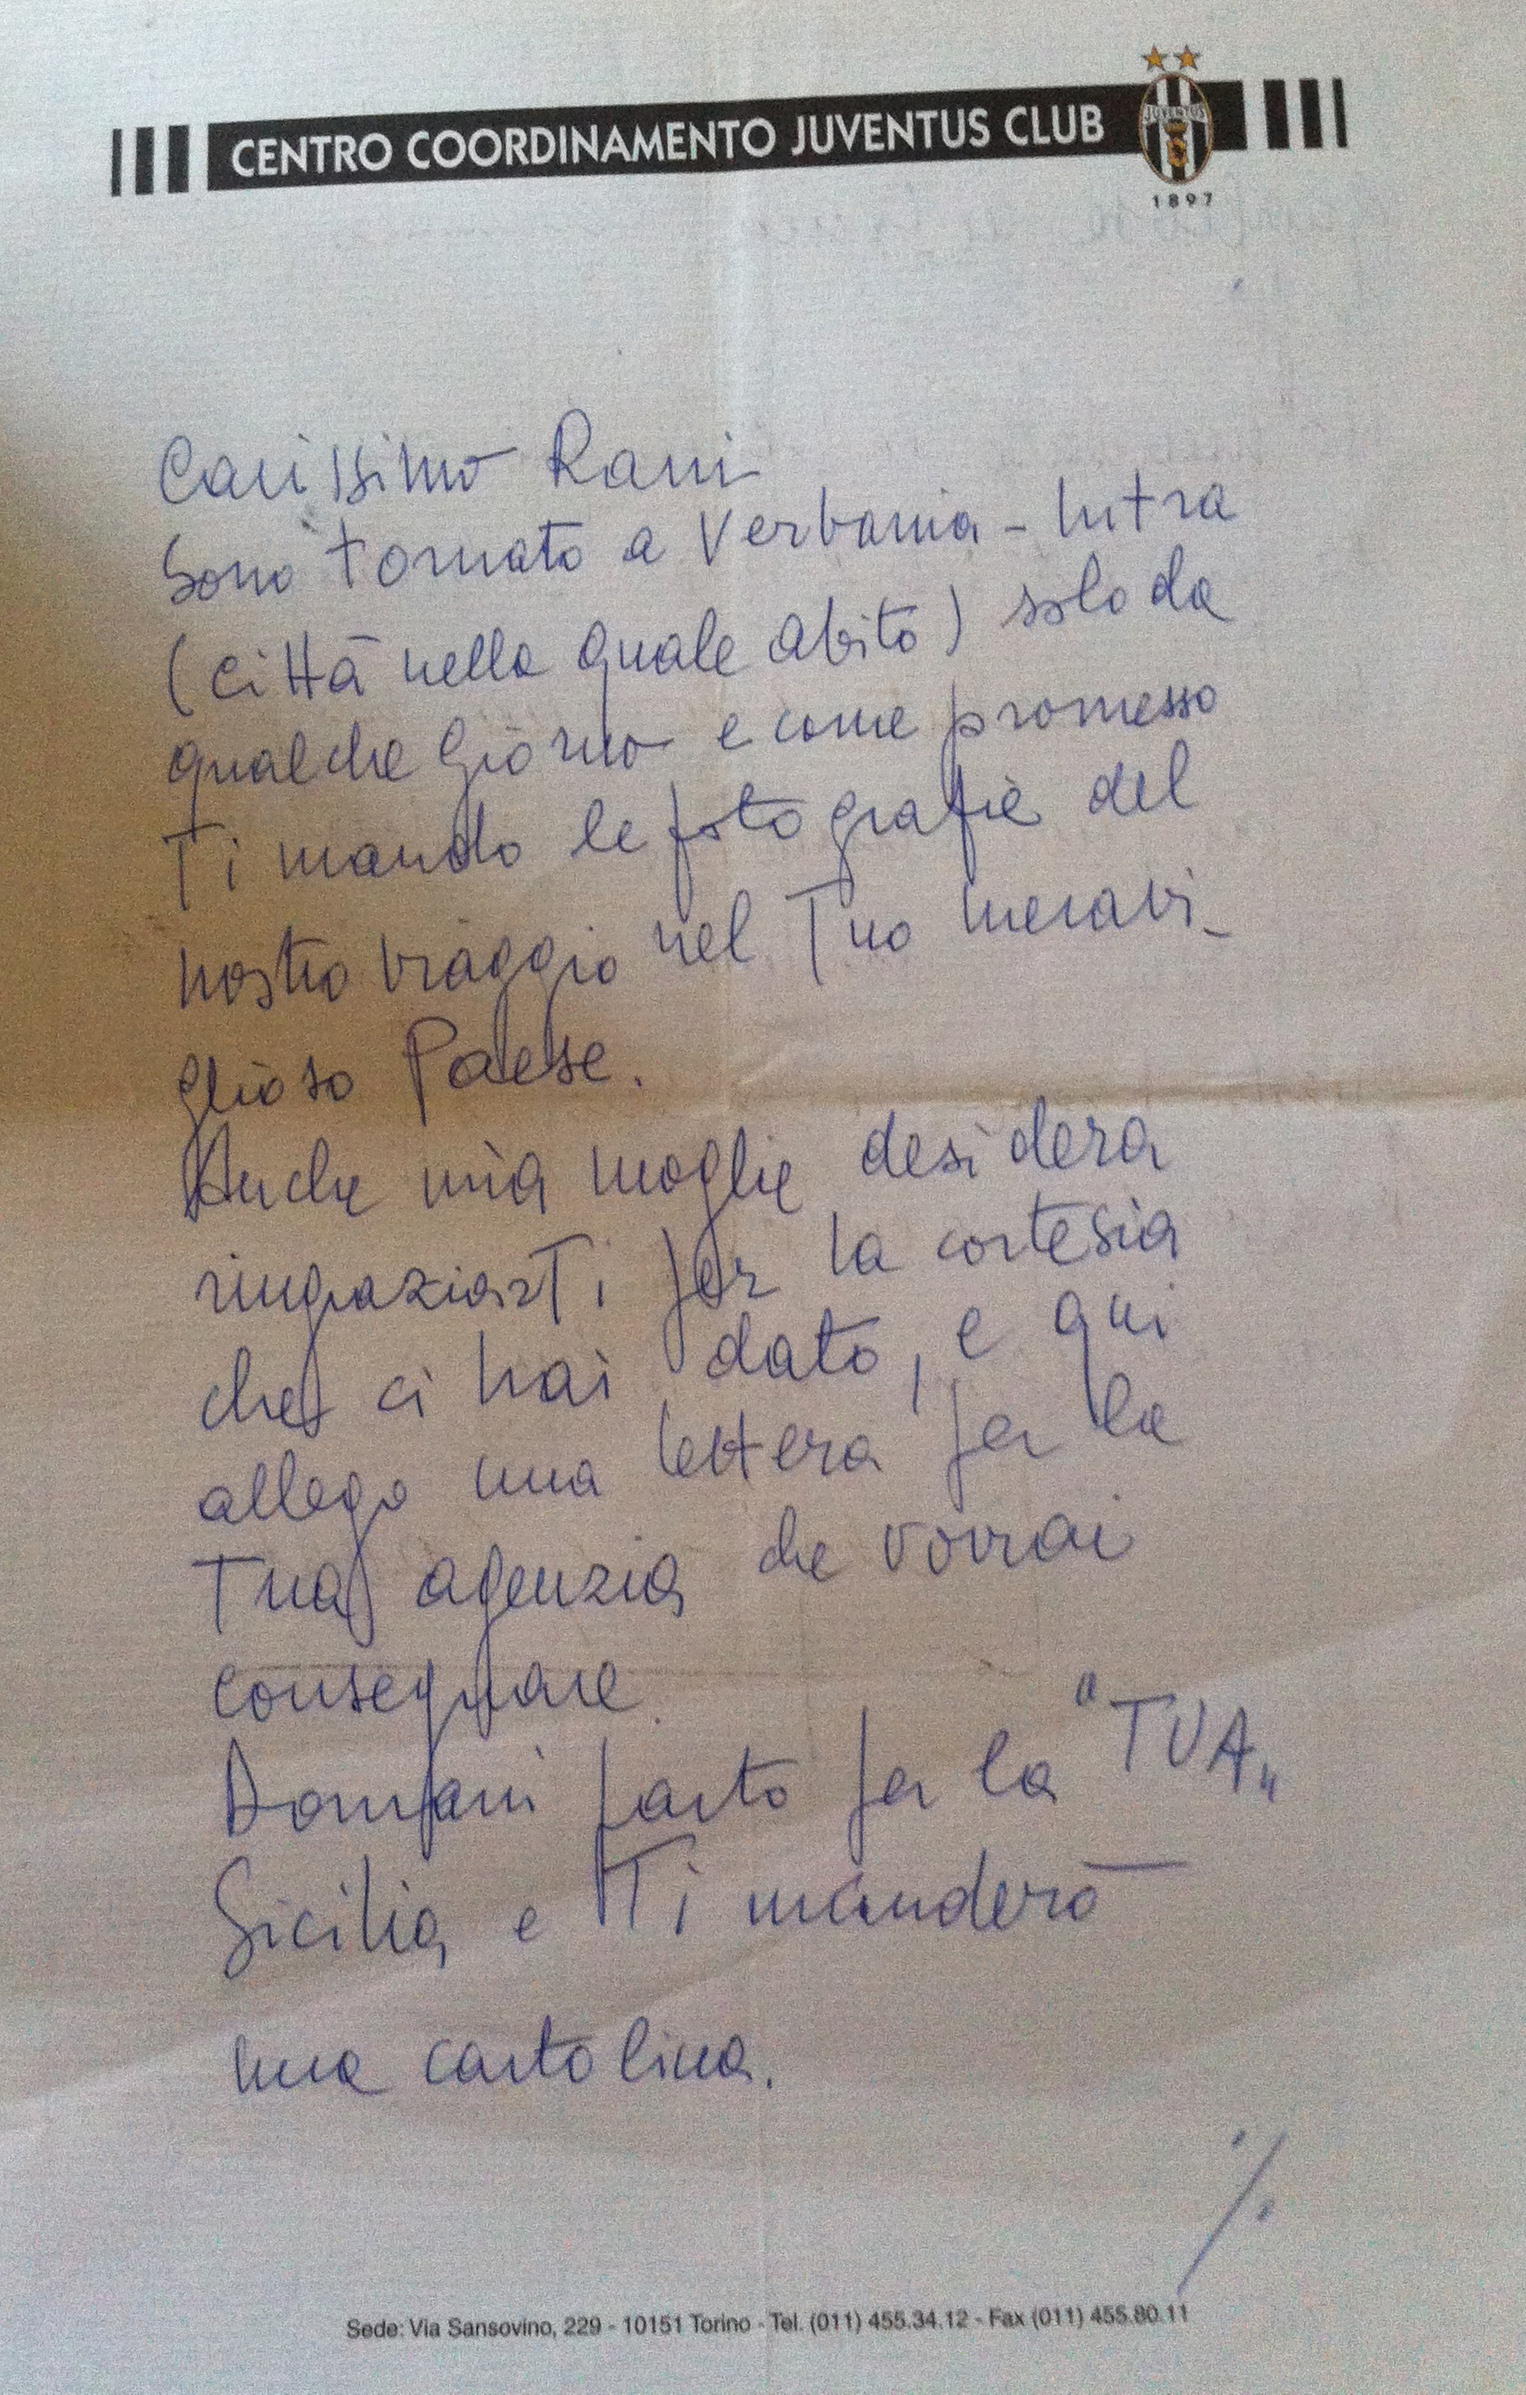 CENTRO COORDINAMENTO JUVENTUS CLUB
JUVENTUS
1897
Carissimo Rami
Sono tornato a Verbania - Intra
(città nella quale abito) solo da
qualche giorno e come promesso
Ti mando le fotografie del
nostro viaggio nel Tuo meravi-
glioso Paese.
Anche mia moglie desidera
ringraziarTi per la cortesia
che ci hai dato, e qui
allego una lettera per la
Tua agenzia che vorrai
consegnare.
Domani parto per la "TUA"
Sicilia e Ti manderò
una cartolina.
./.
Sede: Via Sansovino, 229 - 10151 Torino - Tel. (011) 455.34.12 - Fax (011) 455.80.11